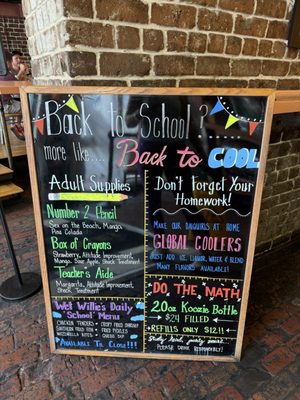 Back to School?....
more like.... Back to COOL
Adult Supplies
Number 2 Pencil
Sex on the Beach, Mango,
Pina Colada
Box of Crayons
Strawberry, Attitude Improvement,
Mango, Sour Apple, Shock Treatment
Teacher's Aide
Margarita, Attitude Improvement,
Shock Treatment
Wet Willie's Daily
School Menu
Chicken Tenders
Southern Fried Fish
Mozzarella Bites
Crispy Fried Shrimp
Fried Pickles
Available Till Close!!!
Don't Forget Your
Homework!
Make our daiquiris at home
GLOBAL COOLERS
Just add ice, liquor, water & blend
Many flavors available!
Do, the Math
20oz Koozie Bottle
$24 Filled
Refills only $12!!
Study hard, party
Please Drink